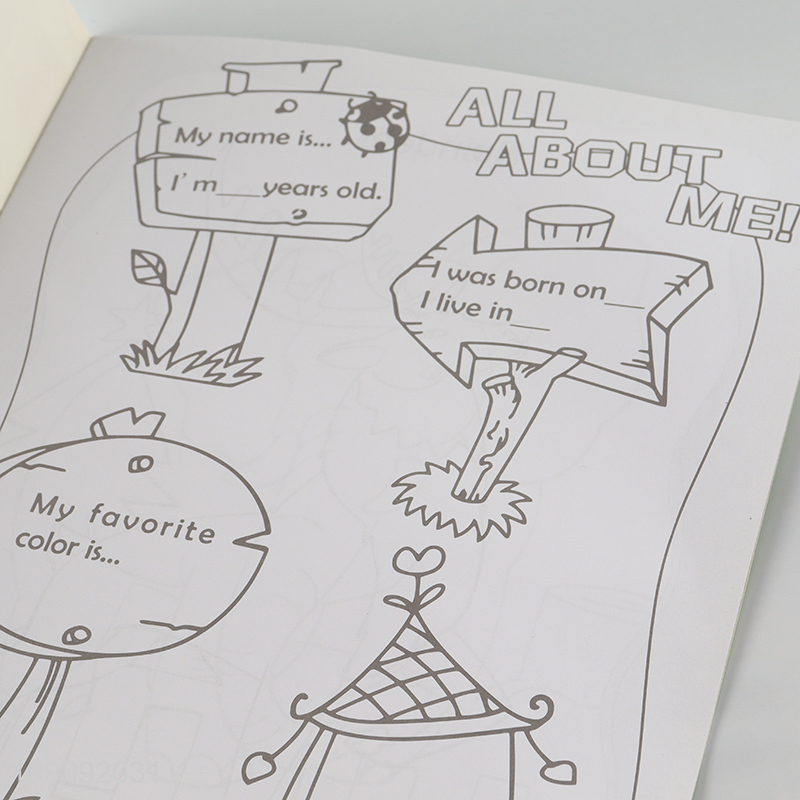 ALL
ABOUT
ME!
My name is...
I'm___years old.
I was born on___
I live in___
My favorite
color is...